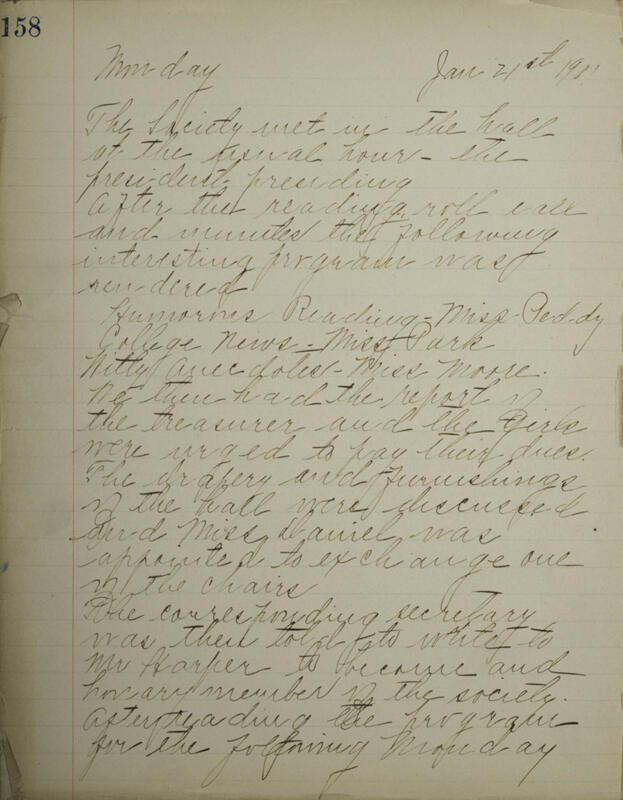 158
Monday Jan 21st 191
The Society met in the hall
at the usual hour - the
president presiding
After the reading, roll call
and minutes the following
interesting program was
rendered
Humorous Reading - Miss Peddy
College News - Miss Park
Witty Anecdotes - Miss Moore.
We then had the report of
the treasurer and the Girls
were urged to pay their dues.
The drapery and furnishings
of the hall were discussed
and Miss Daniel was
appointed to exchange one
of the chairs
The corresponding secretary
was then told to write to
Mr Harper to become and
honary member of the society.
After reading the program
for the following Monday